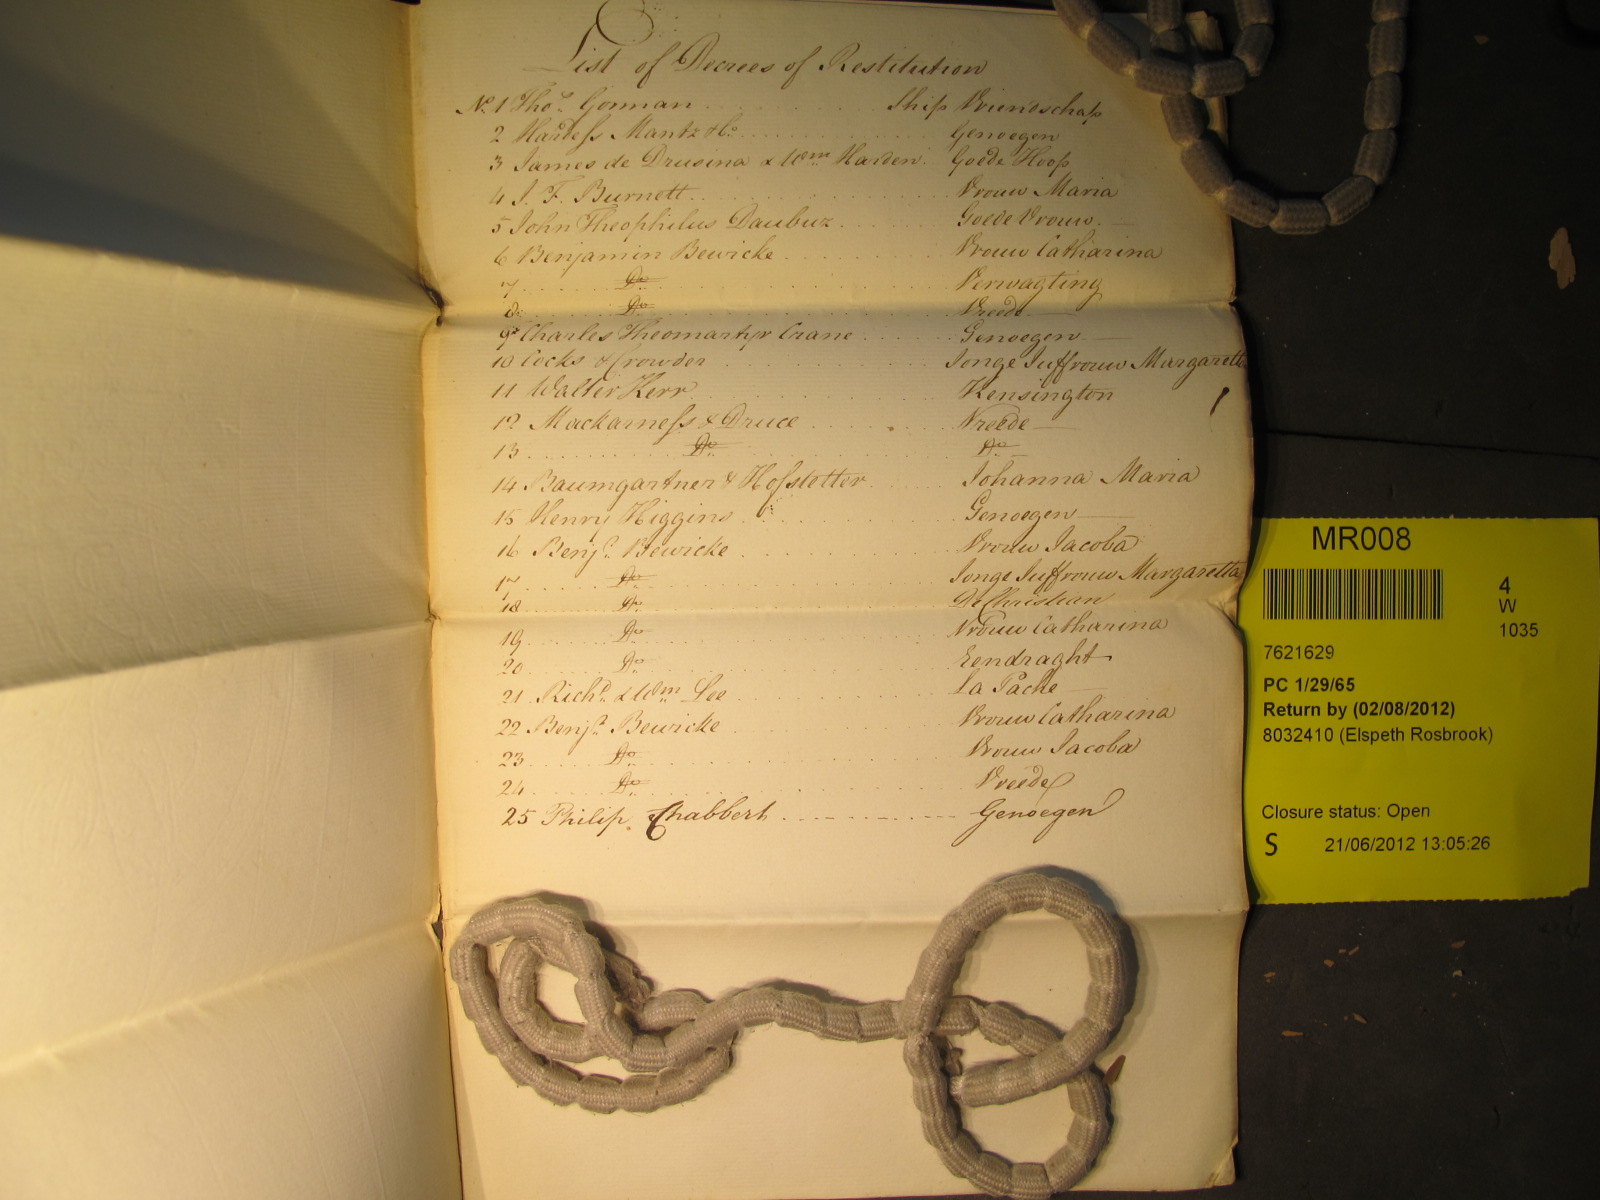 List of Decrees of Restitution
No. 1 Thos. Gorman . . . . . Ship Vriendschap
2 Hardess Mantz & Co. . . . . . Genoegen
3 James de Drusina & Wm Harden. Goede Hoop
4 J. F. Burnett . . . . . Vrouw Maria
5 John Theophilus Daubuz . . . . . Goede Vrouw
6 Benjamin Bewicke . . . . . Vrouw Catharina
7 . . . . . Do . . . . . Verwagting
8 . . . . . Do . . . . . Vreede
9 Charles Theomartyr Crane . . . . . Genoegen
10 Cocks & Crowder . . . . . Jonge Juffrouw Margaretta
11 Walter Kerr . . . . . Kensington
12 Mackarness & Druce . . . . . Vreede
13 . . . . . Do . . . . . Do
14 Baumgartner & Hofstetter . . . . . Johanna Maria
15 Henry Higgins . . . . . Genoegen
16 Benjn. Bewicke . . . . . Vrouw Jacoba
17 . . . . . Do . . . . . Jonge Juffrouw Margaretta
18 . . . . . Do . . . . . De Christian
19 . . . . . Do . . . . . Vrouw Catharina
20 . . . . . Do . . . . . Eendraght
21 Richd. & Wm. Lee . . . . . La Pache
22 Benjn. Bewicke . . . . . Vrouw Catharina
23 . . . . . Do . . . . . Vrouw Jacoba
24 . . . . . Do . . . . . Vreede
25 Philip Chabbert . . . . . Genoegen
MR008
4
W
1035
7621629
PC 1/29/65
Return by (02/08/2012)
8032410 (Elspeth Rosbrook)
Closure status: Open
S 21/06/2012 13:05:26